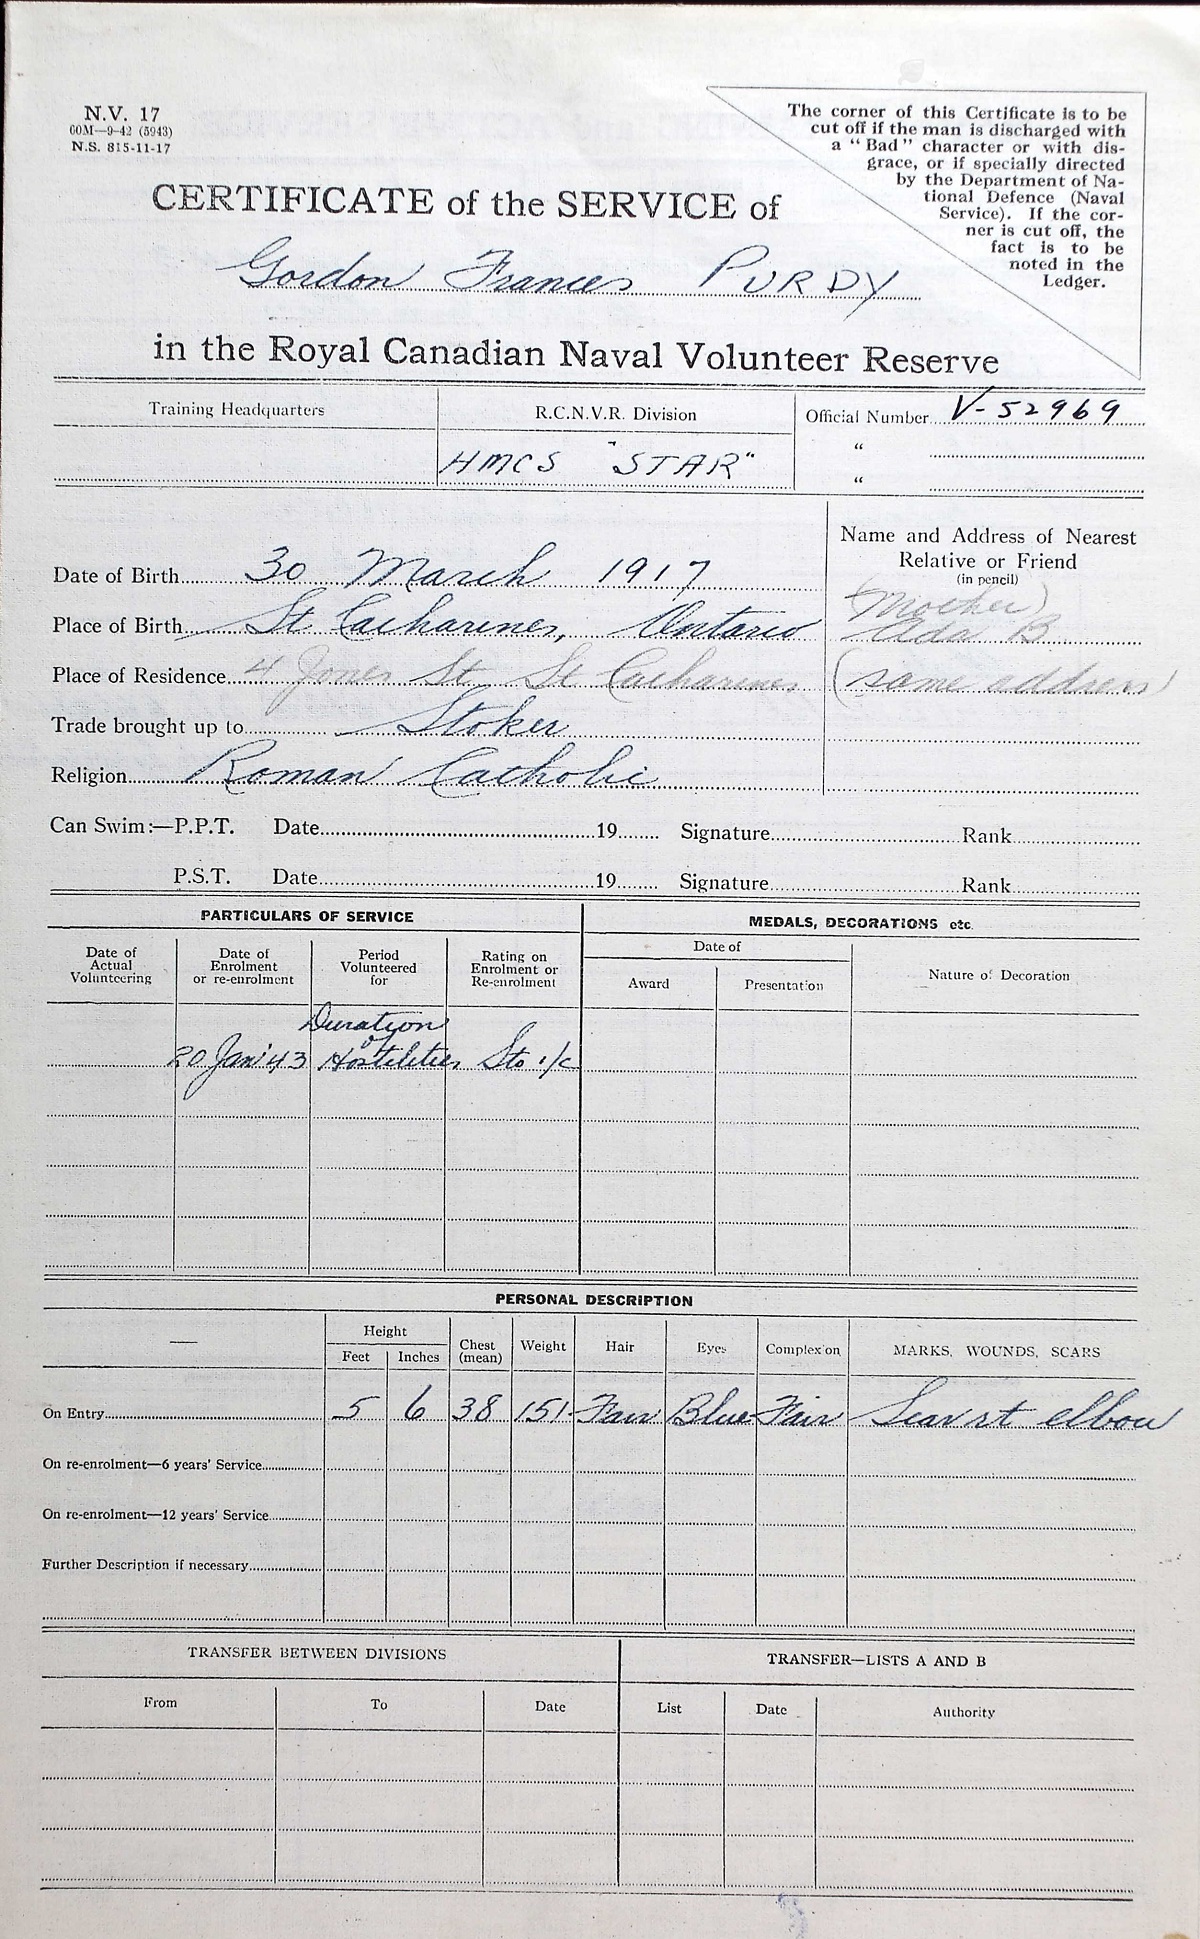 N.V. 17
60M—9-42 (5943)
N.S. 815-11-17
The corner of this Certificate is to be
cut off if the man is discharged with
a "Bad" character or with dis-
grace, or if specially directed
by the Department of Na-
tional Defence (Naval
Service). If the cor-
ner is cut off, the
fact is to be
noted in the
Ledger.
CERTIFICATE of the SERVICE of
Gordon Frances PURDY
in the Royal Canadian Naval Volunteer Reserve
Training Headquarters
R.C.N.V.R. Division
HMCS "STAR"
Official Number V-52969
"
"
Name and Address of Nearest
Relative or Friend
(in pencil)
(Mother)
Ada B
(same address)
Date of Birth 30 March 1917
Place of Birth St Catharines, Ontario
Place of Residence 4 Jones St St Catharines
Trade brought up to Stoker
Religion Roman Catholic
Can Swim:—P.P.T. Date 19 Signature Rank
P.S.T. Date 19 Signature Rank
PARTICULARS OF SERVICE
MEDALS, DECORATIONS etc.
Date of Actual Volunteering
Date of Enrolment or re-enrolment
Period Volunteered for
Rating on Enrolment or Re-enrolment
Date of
Award
Presentation
Nature of Decoration
20 Jan '43 Duration of Hostilities Sto 1/c
PERSONAL DESCRIPTION
—
Height
Feet Inches
Chest (mean)
Weight
Hair
Eyes
Complexion
MARKS, WOUNDS, SCARS
On Entry 5 6 38 151 Fair Blue Fair Scar rt elbow
On re-enrolment—6 years' Service
On re-enrolment—12 years' Service
Further Description if necessary
TRANSFER BETWEEN DIVISIONS
TRANSFER—LISTS A AND B
From To Date List Date Authority